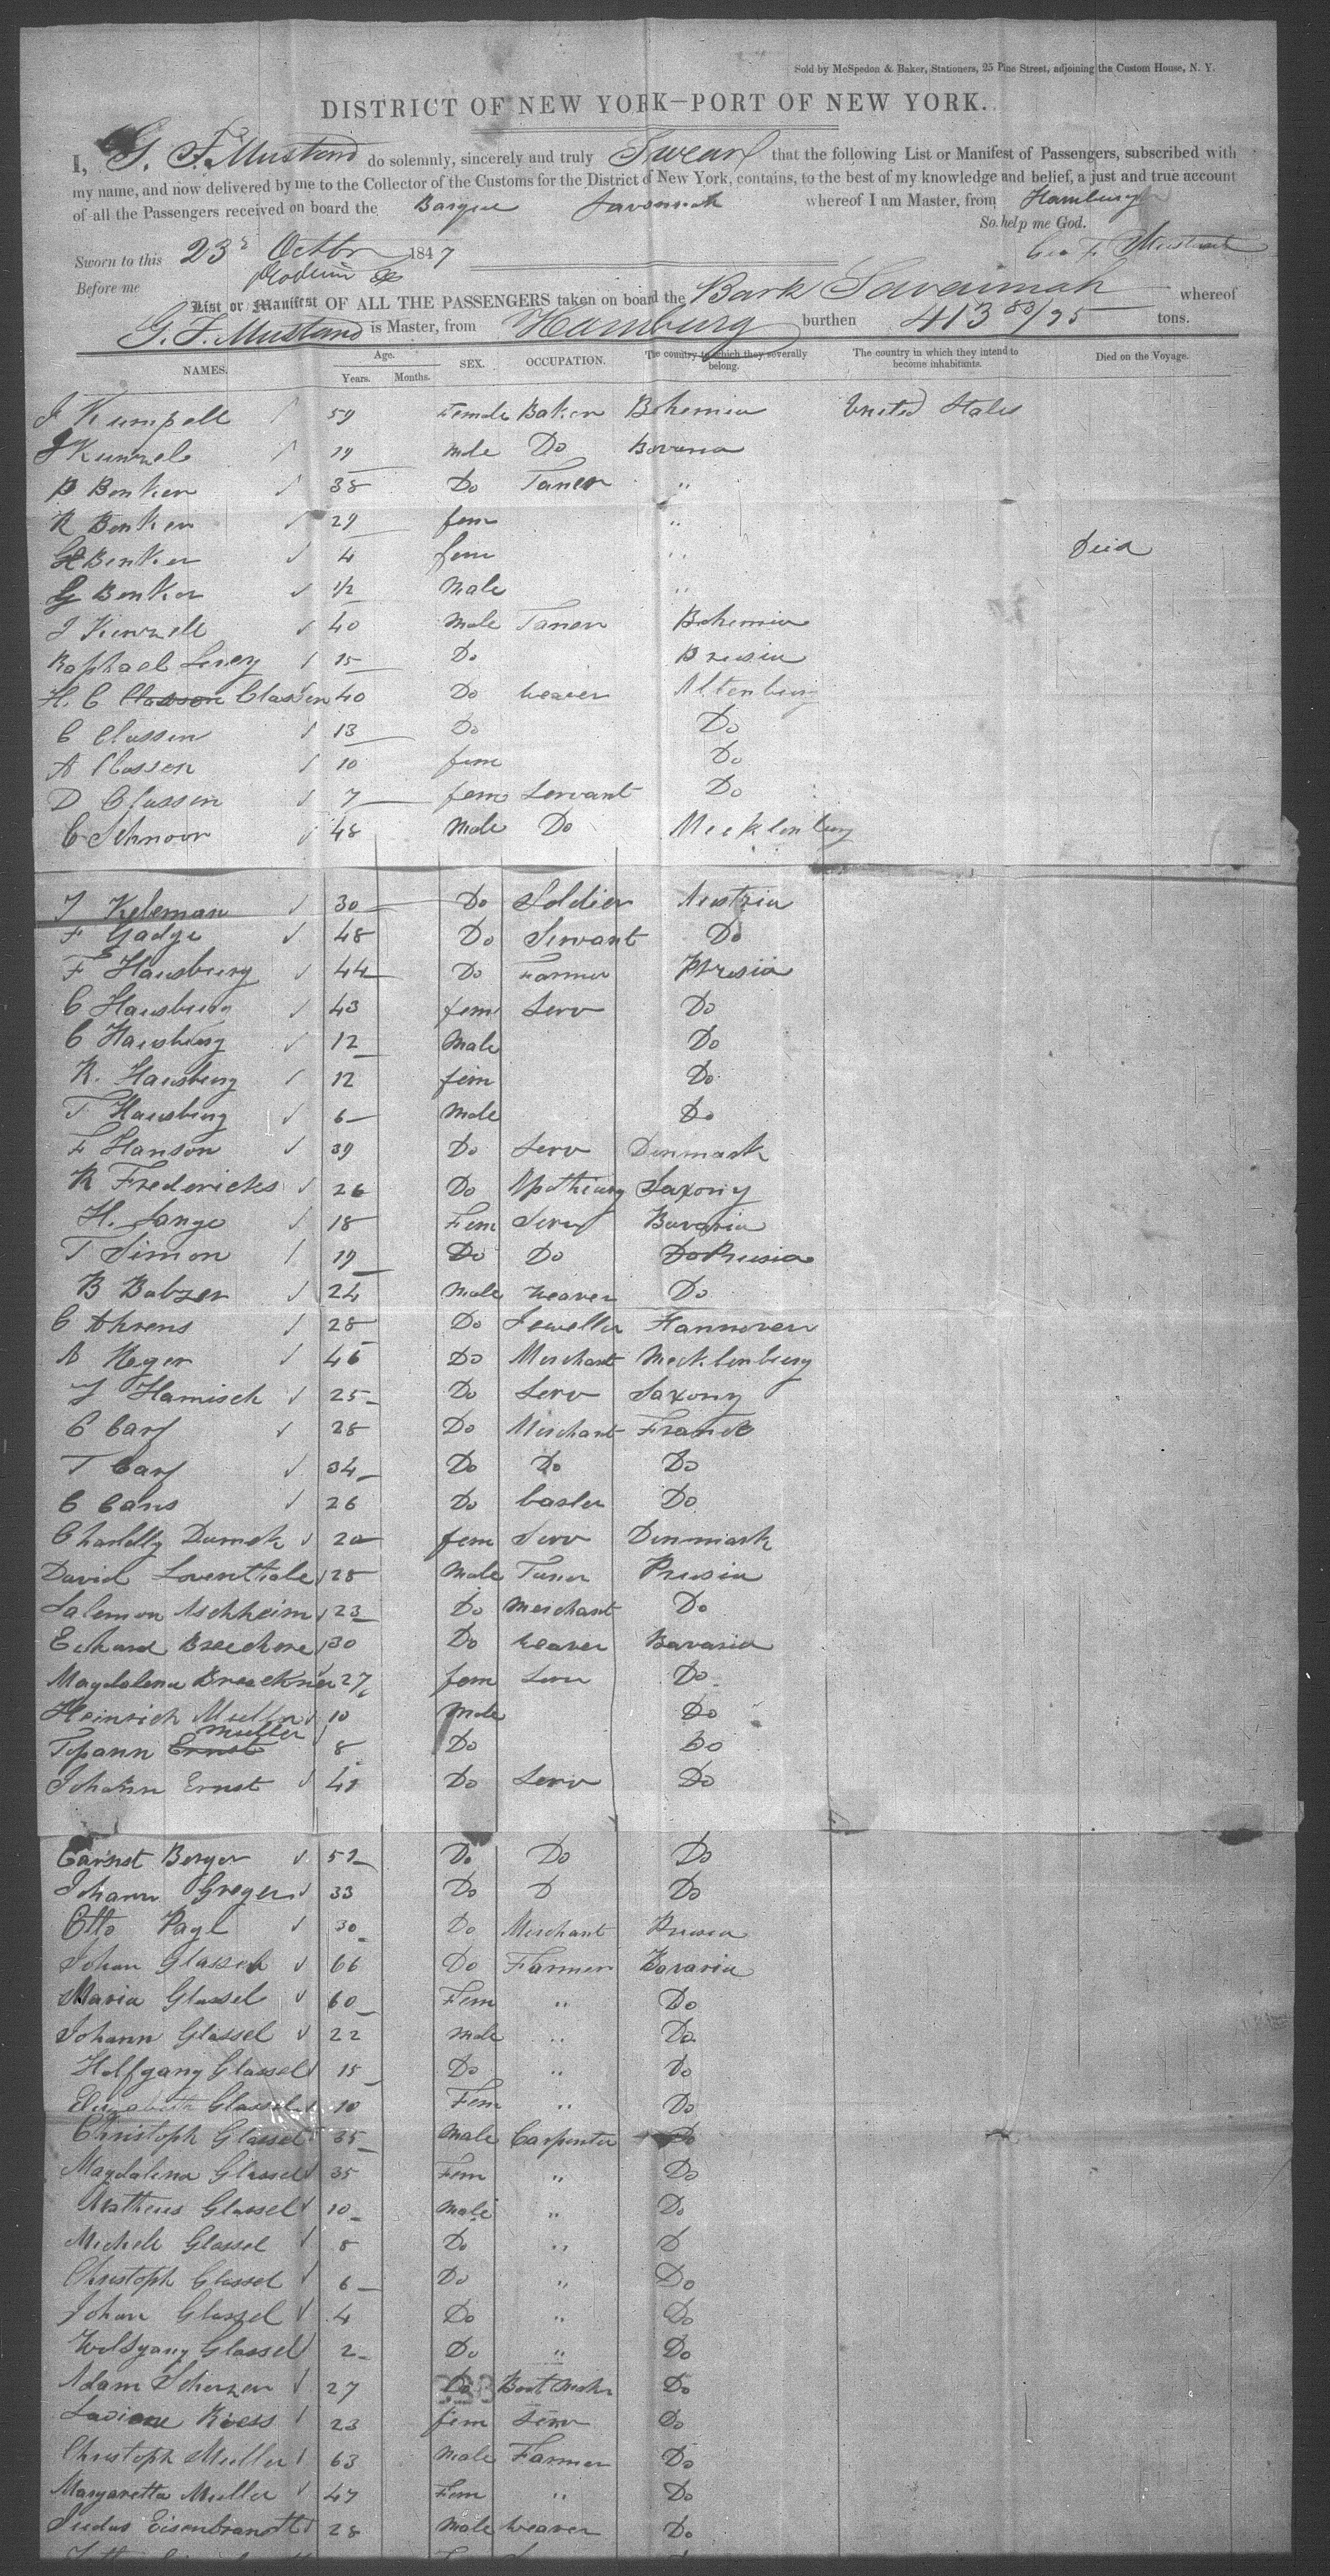 Sold by McSpedon & Baker, Stationers, 25 Pine Street, adjoining the Custom House, N. Y.
DISTRICT OF NEW YORK—PORT OF NEW YORK.
I, G. F. Mustard do solemnly, sincerely and truly Swear that the following List or Manifest of Passengers, subscribed with
my name, and now delivered by me to the Collector of the Customs for the District of New York, contains, to the best of my knowledge and belief, a just and true account
of all the Passengers received on board the Barque Savannah whereof I am Master, from Hamburg
So help me God.
Sworn to this 23 Octbr 1847 Geo F Mustard
Before me
List or Manifest OF ALL THE PASSENGERS taken on board the Bark Savannah whereof
G. F. Mustard is Master, from Hamburg burthen 413 80/95 tons.
NAMES. Age. Years. Months. SEX. OCCUPATION. The country to which they severally belong. The country in which they intend to become inhabitants. Died on the Voyage.
J Kumpell 59 Female Baker Bohemia United States
J Kunzel 19 male Do Bavaria
B Benker 38 Do Taner "
R Benker 29 fem "
Benker 4 fem " Died
G Benker 1/2 Male "
J Kunzell 40 Male Taner Bohemia
Raphael Levey 15 Do Prusia
H. C Classon Classen 40 Do weaver Altenburg
C Classen 13 Do Do
A Classen 10 fem Do
D Classen 7 fem Servant Do
C Schnoor 48 Male Do Mecklenburg
J Keleman 30 Do Soldier Austria
F Gadge 48 Do Servant Do
F Hausburg 44 Do Farmer Prusia
C Hausburg 43 fem Serv Do
C Hausburg 12 Male Do
R. Hausburg 12 fem Do
T Hausburg 6 Male Do
F Hanson 39 Do Serv Denmark
R Fredericks 26 Do Apothicary Saxony
H. Lange 18 Fem Serv Bavaria
T Simon 19 Do Do Do Prusia
B Babzer 24 Male weaver Do
C Ahrens 28 Do Jeweller Hannover
A Neger 46 Do Merchant Mecklenburg
J Hamisch 25 Do Serv Saxony
C Carf 28 Do Merchant France
T Carf 34 Do Do Do
C Cans 26 Do Do
20 fem Serv Denmark
David Loventhale 28 Male Taner Prusia
Salemon Aschheim 23 Do Merchant Do
30 Do weaver Bavaria
Magdalena 27 fem Serv Do
Heinrich Muller 10 Male Do
Muller
Ernst 8 Do Do
Johann Ernst 41 Do Serv Do
Earnst Berger 52 Do Do Do
Johann Greger 33 Do D Do
Otto Page 30 Do Merchant Prusia
Johan Glassel 66 Do Farmer Bavaria
Maria Glassel 60 Fem " Do
Johann Glassel 22 Male " Do
Holfgang Glassel 15 Do " Do
Elizabeth Glassel 10 Fem " Do
Christoph Glassel 35 Male Carpenter Do
Magdalena Glassel 35 Fem " Do
Matheus Glassel 10 Male " Do
Michele Glassel 8 Do " D
Christoph Glassel 6 Do " Do
Johan Glassel 4 Do " Do
Wolfgang Glassel 2 Do " Do
Adam Scherzer 27 Do Boot Maker Do
23 fem Serv Do
Christoph Muller 63 Male Farmer Do
Margaretta Muller 47 Fem " Do
Judas Eisenbrandt 28 Male weaver Do